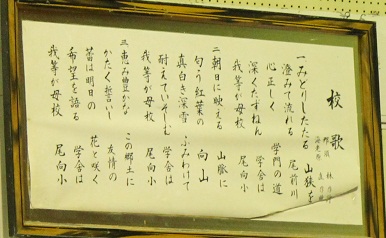 校歌
作詞 林
作曲
一 みどりしたたる 山狭を
澄みて流れる 尾前川
心正しく 学門の道
深くたずねん 学舎は
我等が母校 尾向小
二 朝日に映える 山脈に
匂う紅葉の 向山
真白き深雪 ふみわけて
耐えていそしむ 学舎は
我等が母校 尾向小
三 恵み豊かな この郷土に
かたく誓いし 友情の
蕾は明日の 花と咲く
希望を語る 学舎は
我等が母校 尾向小